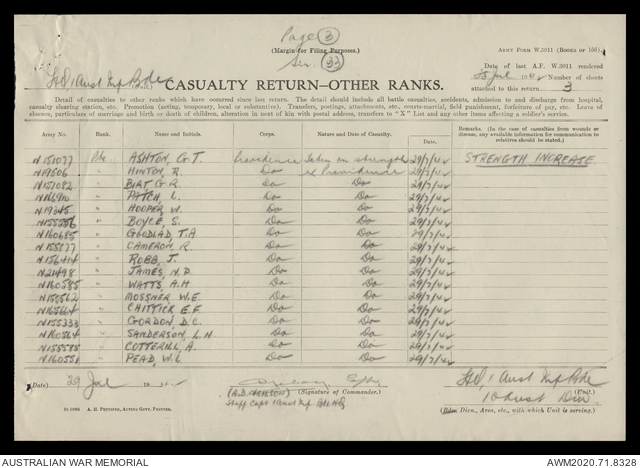 Page 3
(Margin for Filing Purposes.)
Ser. 33
ARMY FORM W.3011 (BOOKS OF 100).
Date of last A.F. W.3011 rendered
H.Q. 1 Aust Inf Bde
CASUALTY RETURN–OTHER RANKS.
25 Jul 1942 Number of sheets
attached to this return 3
Detail of casualties to other ranks which have occurred since last return. The detail should include all battle casualties, accidents, admission to and discharge from hospital,
casualty clearing station, etc. Promotion (acting, temporary, local or substantive). Transfers, postings, attachments, etc., courts-martial, field punishment, forfeiture of pay, etc. Leave of
absence, particulars of marriage and birth or death of children, alteration in next of kin with postal address, transfers to "X" List and any other items affecting a soldier's service.
Army No. Rank. Name and Initials. Corps. Nature and Date of Casualty. Date. Remarks. (In the case of casualties from wounds or disease, any available information for communication to relatives should be stated.)
N151077 Pte ASHTON, G.T. Providence Taken on strength 29/7/42 STRENGTH INCREASE
N19506 " HINTON, R. Do ex Providence 29/7/42
N151082 " BIRT G.R. Do Do 29/7/42
N166910 " PATCH, L. Do Do 29/7/42
N19345 " HOOPER W. Do Do 29/7/42
N155556 " BOYCE, S. Do Do 29/7/42
N160685 " GOODLAD, T.A. Do Do 29/7/42
N155877 " CAMERON R. Do Do 29/7/42
N156414 " ROBB, J. Do Do 29/7/42
N21498 " JAMES, N.P. Do Do 29/7/42
N160585 " WATTS, A.H Do Do 29/7/42
N155562 " MOSSNER W.E. Do Do 29/7/42
N165664 " CHITTICK E.F. Do Do 29/7/42
N155333 " GORDON, D.C. Do Do 29/7/42
N160564 " SANDERSON, L.H. Do Do 29/7/42
N155585 " COTTERILL A. Do Do 29/7/42
N160551 " PEAD, W.L Do Do 29/7/42
(Date) 29 Jul 1942
(Signature of Commander.)
Staff Capt 1 Aust Inf Bde HQ
H.Q. 1 Aust Inf Bde
(Unit.)
10 Aust Div
(Bde., Div., Area, etc., with which Unit is serving.)
A. H. PETTIFER, ACTING GOVT. PRINTER.
AUSTRALIAN WAR MEMORIAL
AWM2020.71.8328